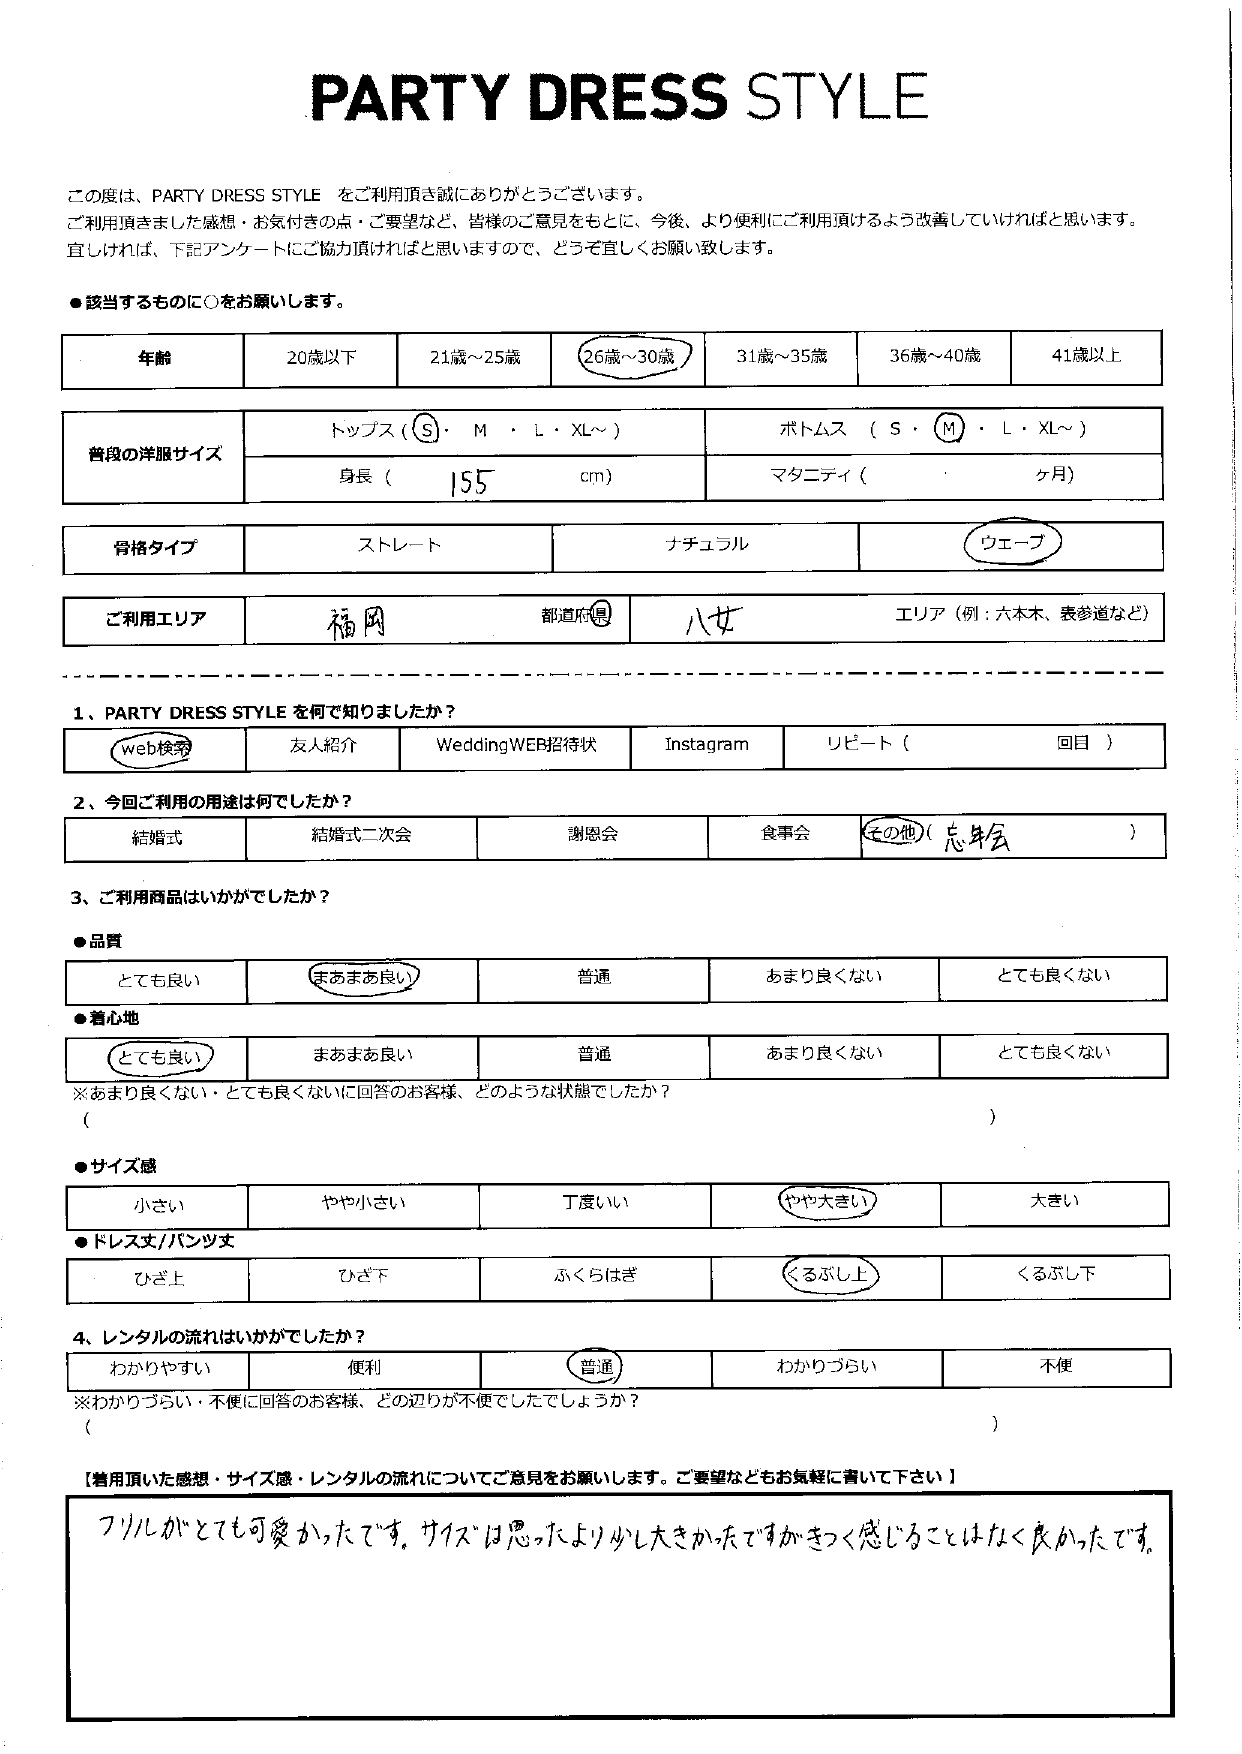 PARTY DRESS STYLE
この度は、PARTY DRESS STYLE をご利用頂き誠にありがとうございます。
ご利用頂きました感想・お気付きの点・ご要望など、皆様のご意見をもとに、今後、より便利にご利用頂けるよう改善していければと思います。
宜しければ、下記アンケートにご協力頂ければと思いますので、どうぞ宜しくお願い致します。
●該当するものに○をお願いします。
年齢 20歳以下 21歳～25歳 26歳～30歳 31歳～35歳 36歳～40歳 41歳以上
普段の洋服サイズ トップス ( S ・ M ・ L ・ XL～ ) ボトムス ( S ・ M ・ L ・ XL～ )
身長 ( 155 cm) マタニティ ( ヶ月)
骨格タイプ ストレート ナチュラル ウェーブ
ご利用エリア 福岡 都道府県 八女 エリア（例：六本木、表参道など）
1、PARTY DRESS STYLE を何で知りましたか？
web検索 友人紹介 WeddingWEB招待状 Instagram リピート ( 回目 )
2、今回ご利用の用途は何でしたか？
結婚式 結婚式二次会 謝恩会 食事会 その他 ( 忘年会 )
3、ご利用商品はいかがでしたか？
●品質
とても良い まあまあ良い 普通 あまり良くない とても良くない
●着心地
とても良い まあまあ良い 普通 あまり良くない とても良くない
※あまり良くない・とても良くないに回答のお客様、どのような状態でしたか？
( )
●サイズ感
小さい やや小さい 丁度いい やや大きい 大きい
●ドレス丈/パンツ丈
ひざ上 ひざ下 ふくらはぎ くるぶし上 くるぶし下
4、レンタルの流れはいかがでしたか？
わかりやすい 便利 普通 わかりづらい 不便
※わかりづらい・不便に回答のお客様、どの辺りが不便でしたでしょうか？
( )
【着用頂いた感想・サイズ感・レンタルの流れについてご意見をお願いします。ご要望などもお気軽に書いて下さい】
フリルがとても可愛かったです。サイズは思ったより少し大きかったですがきつく感じることはなく良かったです。